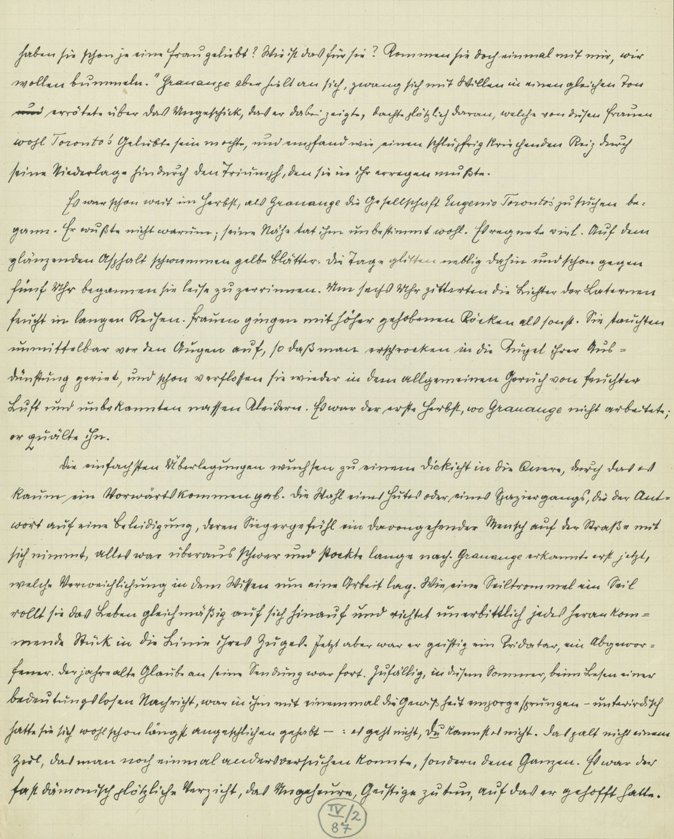 haben sie schon je eine Frau geliebt? Wie ist das für sie? Kommen sie doch einmal mit mir, wir
wollen bummeln." Granauge aber hielt an sich, zwang sich mit Willen in einen gleichen Ton
und errötete über das Ungeschick, das er dabei zeigte, dachte plötzlich daran, welche von diesen Frauen
wohl Toronto's Geliebte sein mochte, und empfand wie einen schlüpfrig kriechenden Reiz durch
seine Niederlage hindurch den Triumph, den sie in ihr erregen mußte.
Es war schon weit im Herbst, als Granauge die Gesellschaft Eugenio Torontos zu suchen be-
gann. Er wußte nicht warum; seine Nähe tat ihm unbestimmt wohl. Es regnete viel. Auf dem
glänzenden Asphalt schwammen gelbe Blätter. Die Tage glitten neblig dahin und schon gegen
fünf Uhr begannen sie leise zu zerrinnen. Um sechs Uhr zitterten die Lichter der Laternen
feucht in langen Reihen. Frauen gingen mit höher gehobenen Röcken als sonst. Sie tauchten
unmittelbar vor den Augen auf, so daß man erschrocken in die Kugel ihrer Aus-
dünstung geriet, und schon verflossen sie wieder in dem allgemeinen Geruch von feuchter
Luft und unbekannten nassen Kleidern. Es war der erste Herbst, wo Granauge nicht arbeitete;
er quälte ihn.
Die einfachsten Überlegungen wuchsen zu einem Dickicht in die Quere, durch das es
kaum ein Vorwärtskommen gab. Die Wahl eines Hutes oder eines Spaziergangs, die der Ant-
wort auf eine Beleidigung, deren Siegergefühl ein davongehender Mensch auf der Straße mit
sich nimmt, alles war überaus schwer und stockte lange nach. Granauge erkannte erst jetzt,
welche Verweichlichung in dem Wissen um eine Arbeit lag. Wie eine Seiltrommel ein Seil
rollt sie das Leben gleichmäßig auf sich hinauf und richtet unerbittlich jedes herankom-
mende Stück in die Linie ihres Zuges. Jetzt aber war er geistig ein ein Abgewor-
fener. Der jahrealte Glaube an seine Sendung war fort. Zufällig, in diesem Sommer, beim Lesen einer
bedeutungslosen Nachricht, war in ihm mit einemmal die Gewißheit emporgesprungen – unterirdisch
hatte sie sich wohl schon längst angeschlichen gehabt – : es geht nicht, Du kannst es nicht. Das galt nicht einem
Ziel, das man noch einmal anders versuchen konnte, sondern dem Ganzen. Es war der
fast dämonisch plötzliche Verzicht, das Ungeheure, Geistige zu tun, auf das er gehofft hatte.
IV/2
87